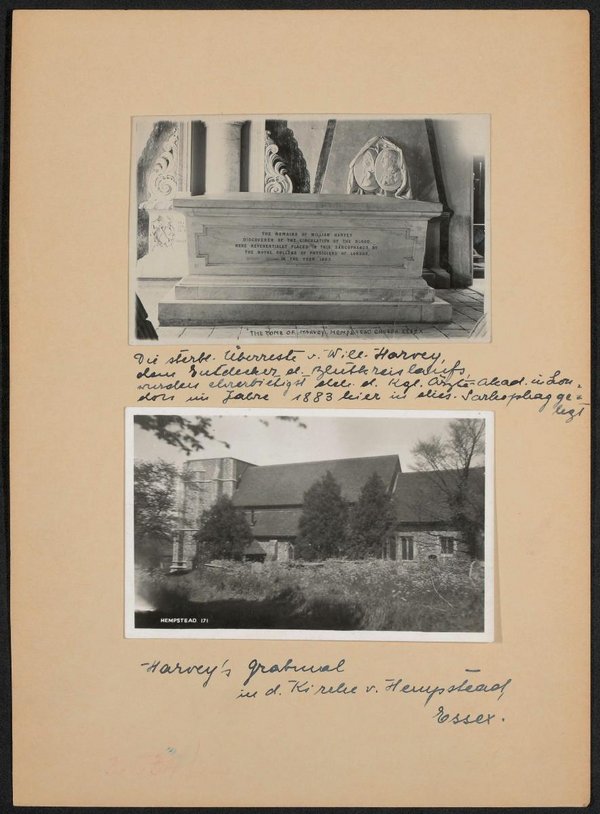 THE REMAINS OF WILLIAM HARVEY
DISCOVERER OF THE CIRCULATION OF THE BLOOD
WERE REVERENTIALLY PLACED IN THIS SARCOPHAGUS BY
THE ROYAL COLLEGE OF PHYSICIANS OF LONDON
IN THE YEAR 1883
THE TOMB OF HARVEY, HEMPSTEAD CHURCH ESSEX
Die sterbl. Überreste v. Will. Harvey,
dem Entdecker d. Blutkreislaufs,
wurden ehrerbietigst v. d. Kgl. Ärzte-Akad. in Lon-
don im Jahre 1883 hier in dies. Sarkophag ge-
legt
HEMPSTEAD 171
Harvey's Grabmal
in d. Kirche v. Hempstead,
Essex.